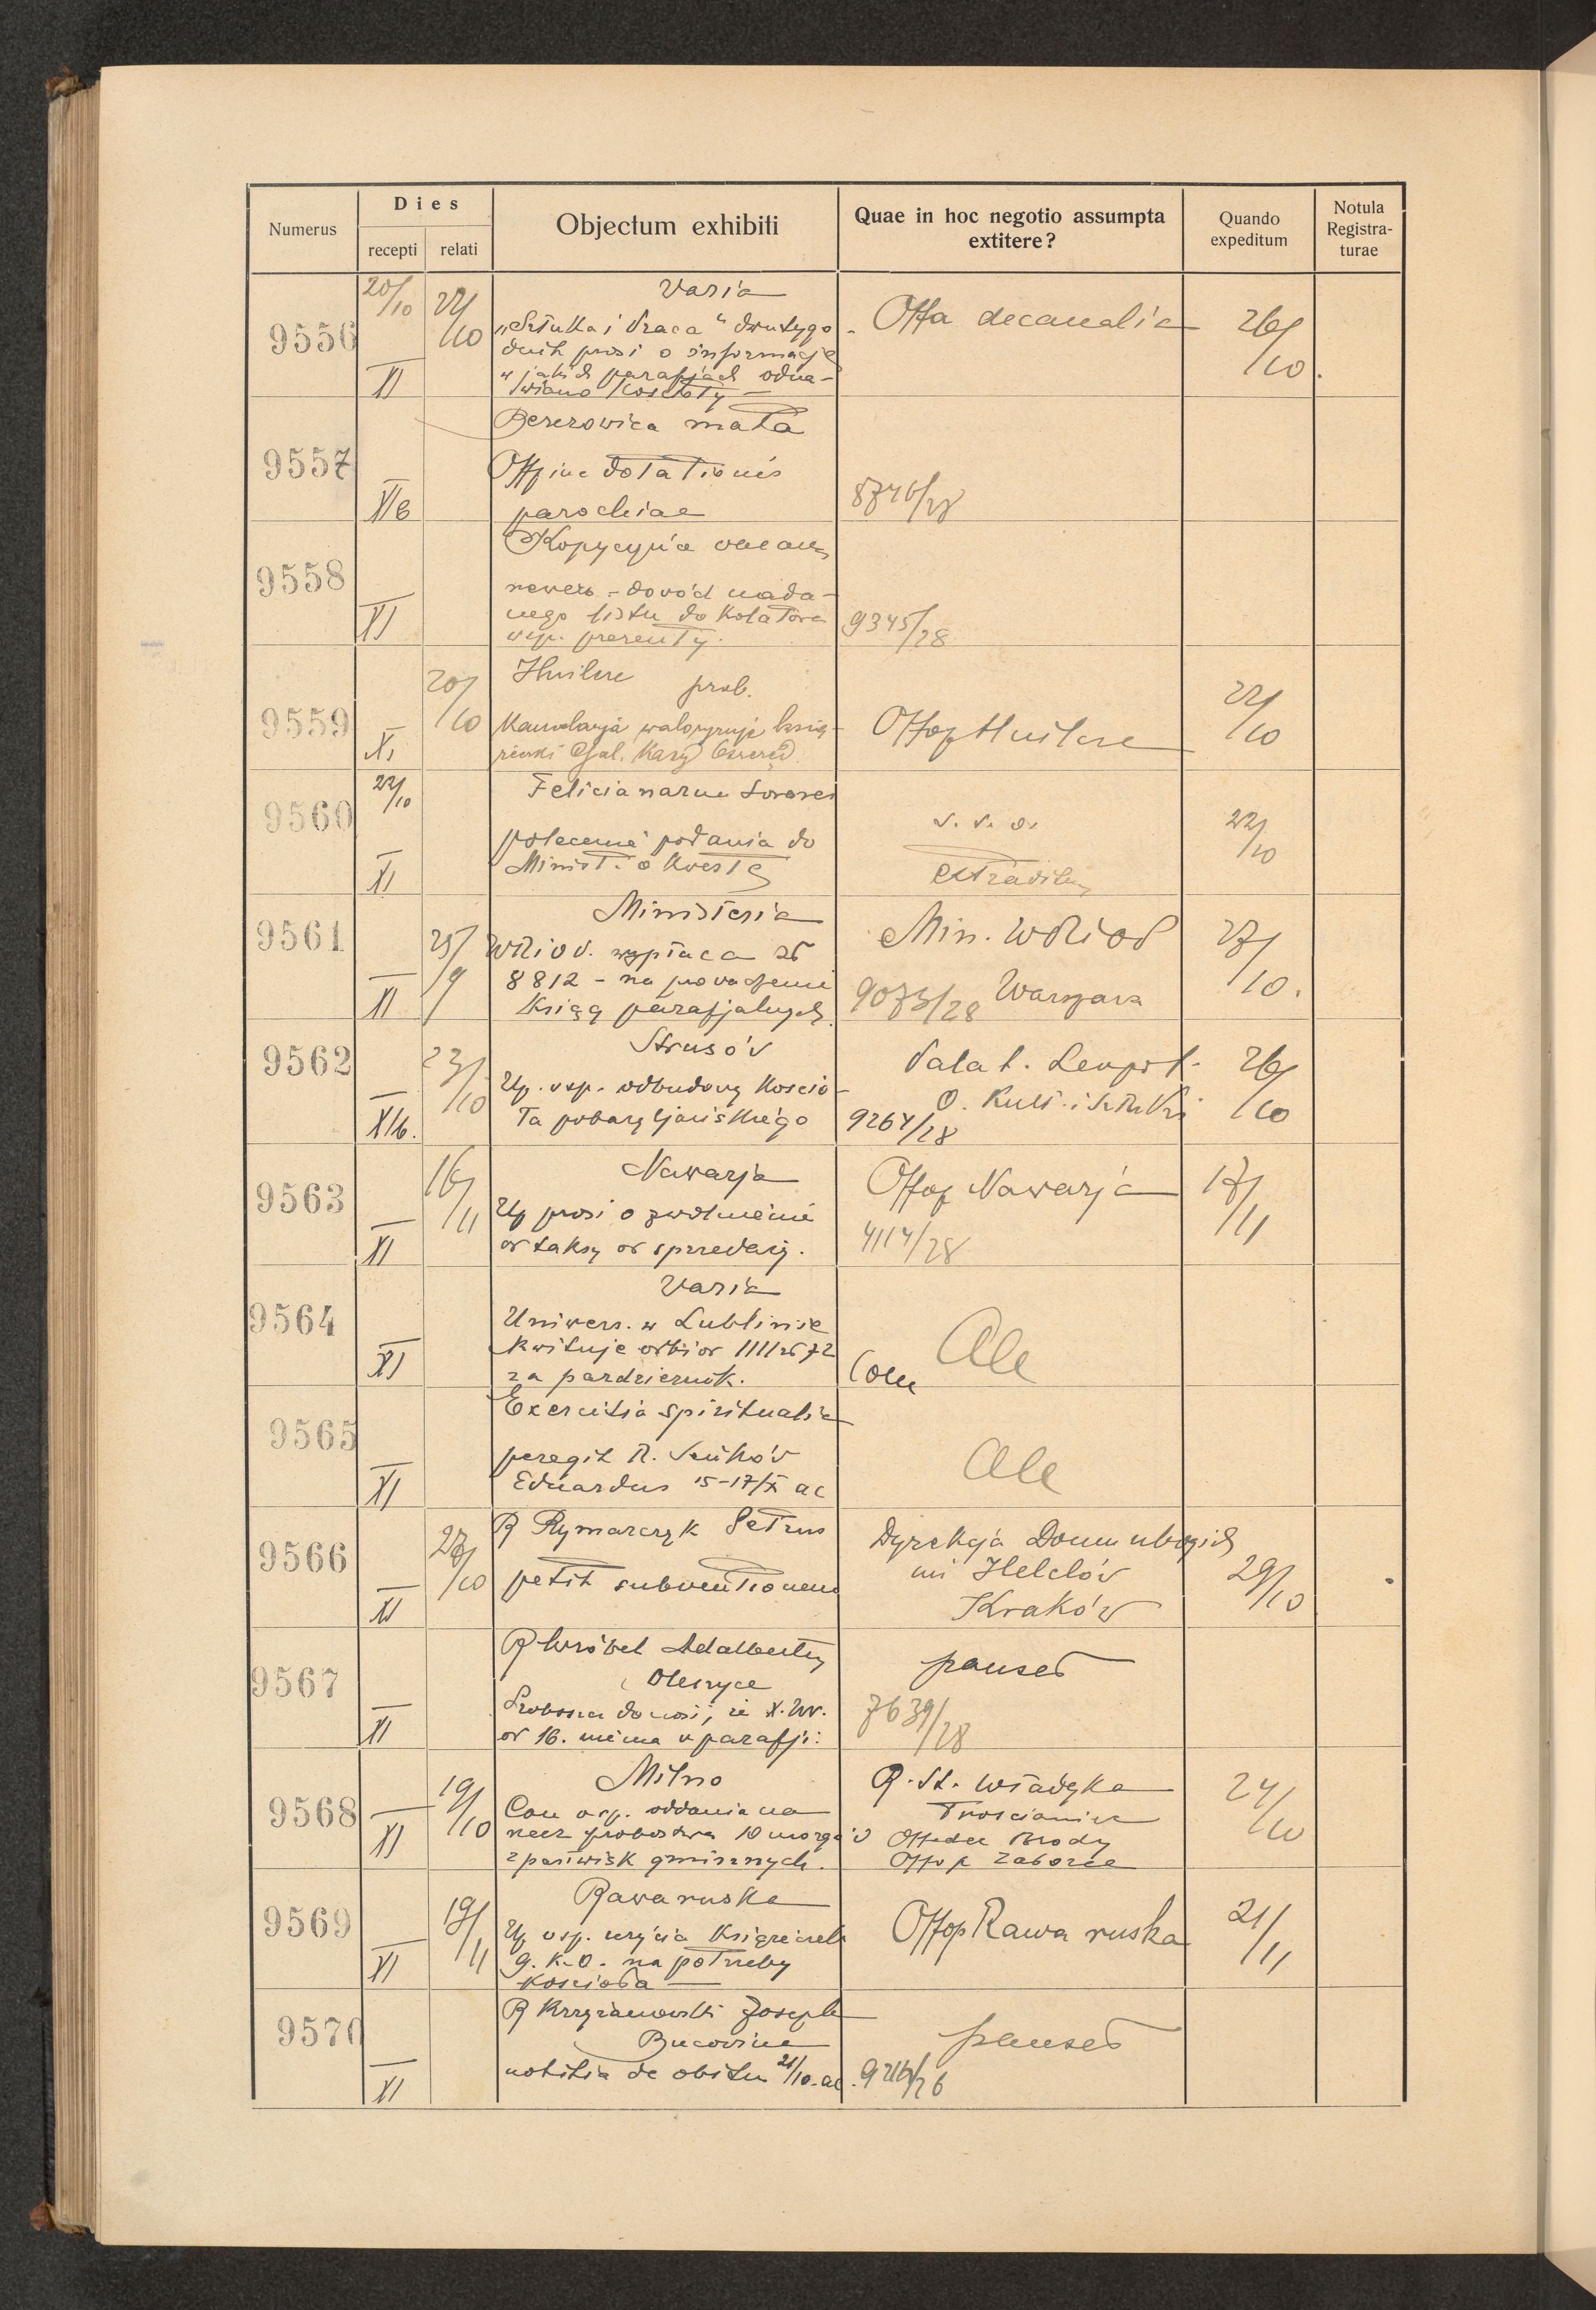 Numerus
Dies
recepti
relati
Objectum exhibiti
Quae in hoc negotio assumpta
extitere?
Quando
expeditum
Notula
Registra-
turae
9556
20/10
22/10
XI
Varia
„Sztuka i Praca“ dwutygo-
dnik prosi o informacje
w jakich parafjach odna-
wiano Kościoły
Offa decanalia
26/10.
9557
XIb
Berezowica mała
Offium dotationis
parochiae
8746/28
9558
XI
Kopyczyńce
rewers - dowód nada-
nego listu do Kolatora
wsp. prezenty.
9345/28
9559
20/10
XI
Huilcze prob.
książ-
Gal. Kasy Oszczęd.
Offop Huilcze
22/10
9560
22/10
XI
Felicianarum Sorores
polecenie podania do
Minist. o Kwestę
v. v. o.
extraditum
22/10
9561
25/9
XI
Ministeria
WRiOP. wypłaca zł
8812 - na prowadzenie
Ksiąg parafjalnych.
Min. WRiOP
9073/28 Warszawa
27/10.
9562
23/10
XIb.
Strusów
Up. wsp. odbudowy Kościo-
ła pobazyljańskiego
Palat. Leopol.
O. Kult. i Sztuki
9264/28
26/10
9563
16/11
XI
Nawarja
Up prosi o zwolnienie
od taksy od sprzedaży.
Offop Nawarja
4114/28
17/11
9564
XI
Varia
Uniwers. w Lublinie
Kwituje odbiór 1111 zł 72
za październik.
Ale
9565
XI
Exercitia spiritualia
peregit R.
Eduardus 15-17/X ac
Ale
9566
27/10
XI
R Rymarczyk Petrus
petit subventionem
Dyrekcja Domu ubogich
im Helclów
Kraków
29/10
9567
XI
R Wróbel Adalbertus
Oleszyce
donosi, że X. Wr.
od 16. niema w parafji.
7639/28
9568
19/10
XI
Milno
Con wsp. oddania na
rzecz probostwa 10 morgów
z pastwisk gminnych.
R. St. Władyka
Trościaniec
Offdec Brody
Offop Załoźce
24/10
9569
19/11
XI
Rawa ruska
Up wsp. użycia Książeczek
g. K. O. na potrzeby
Kościoła
Offop Rawa ruska
21/11
9570
XI
R Krzyżanowski Joseph
Bucovina
notitia de obitu 21/10 ac.
9216/26